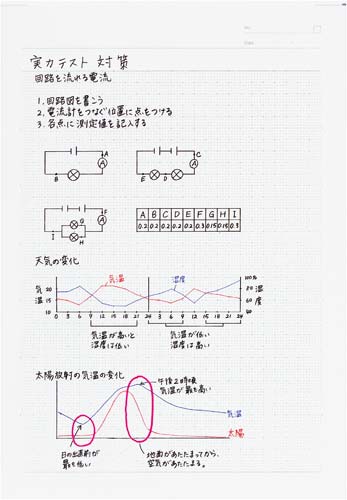 実力テスト対策
回路を流れる電流
1. 回路図を書こう
2. 電流計をつなぐ位置に点をつける
3. 各点に測定値を記入する
A
A
B
C
A
E D
F
A
G
I
H
A B C D E F G H I
0.2 0.2 0.2 0.2 0.2 0.3 0.15 0.15 0.3
天気の変化
気温 湿度
気温
20
15
10
100%
80
60
40
湿度
0 3 6 9 12 15 18 21 24 3 6 9 12 15 18 21 24
気温が高いと
湿度は低い
気温が低い
湿度は高い
太陽放射の気温の変化
午後2時頃
気温が最も高い
気温
太陽
日の出直前が
最も低い
地面があたたまってから、
空気があたたまる。